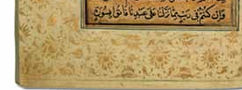 وَإِنْ كُنْتُمْ فِي رَيْبٍ مِمَّا نَزَّلْنَا عَلَى عَبْدِنَا فَأْتُوا بِسُورَةٍ